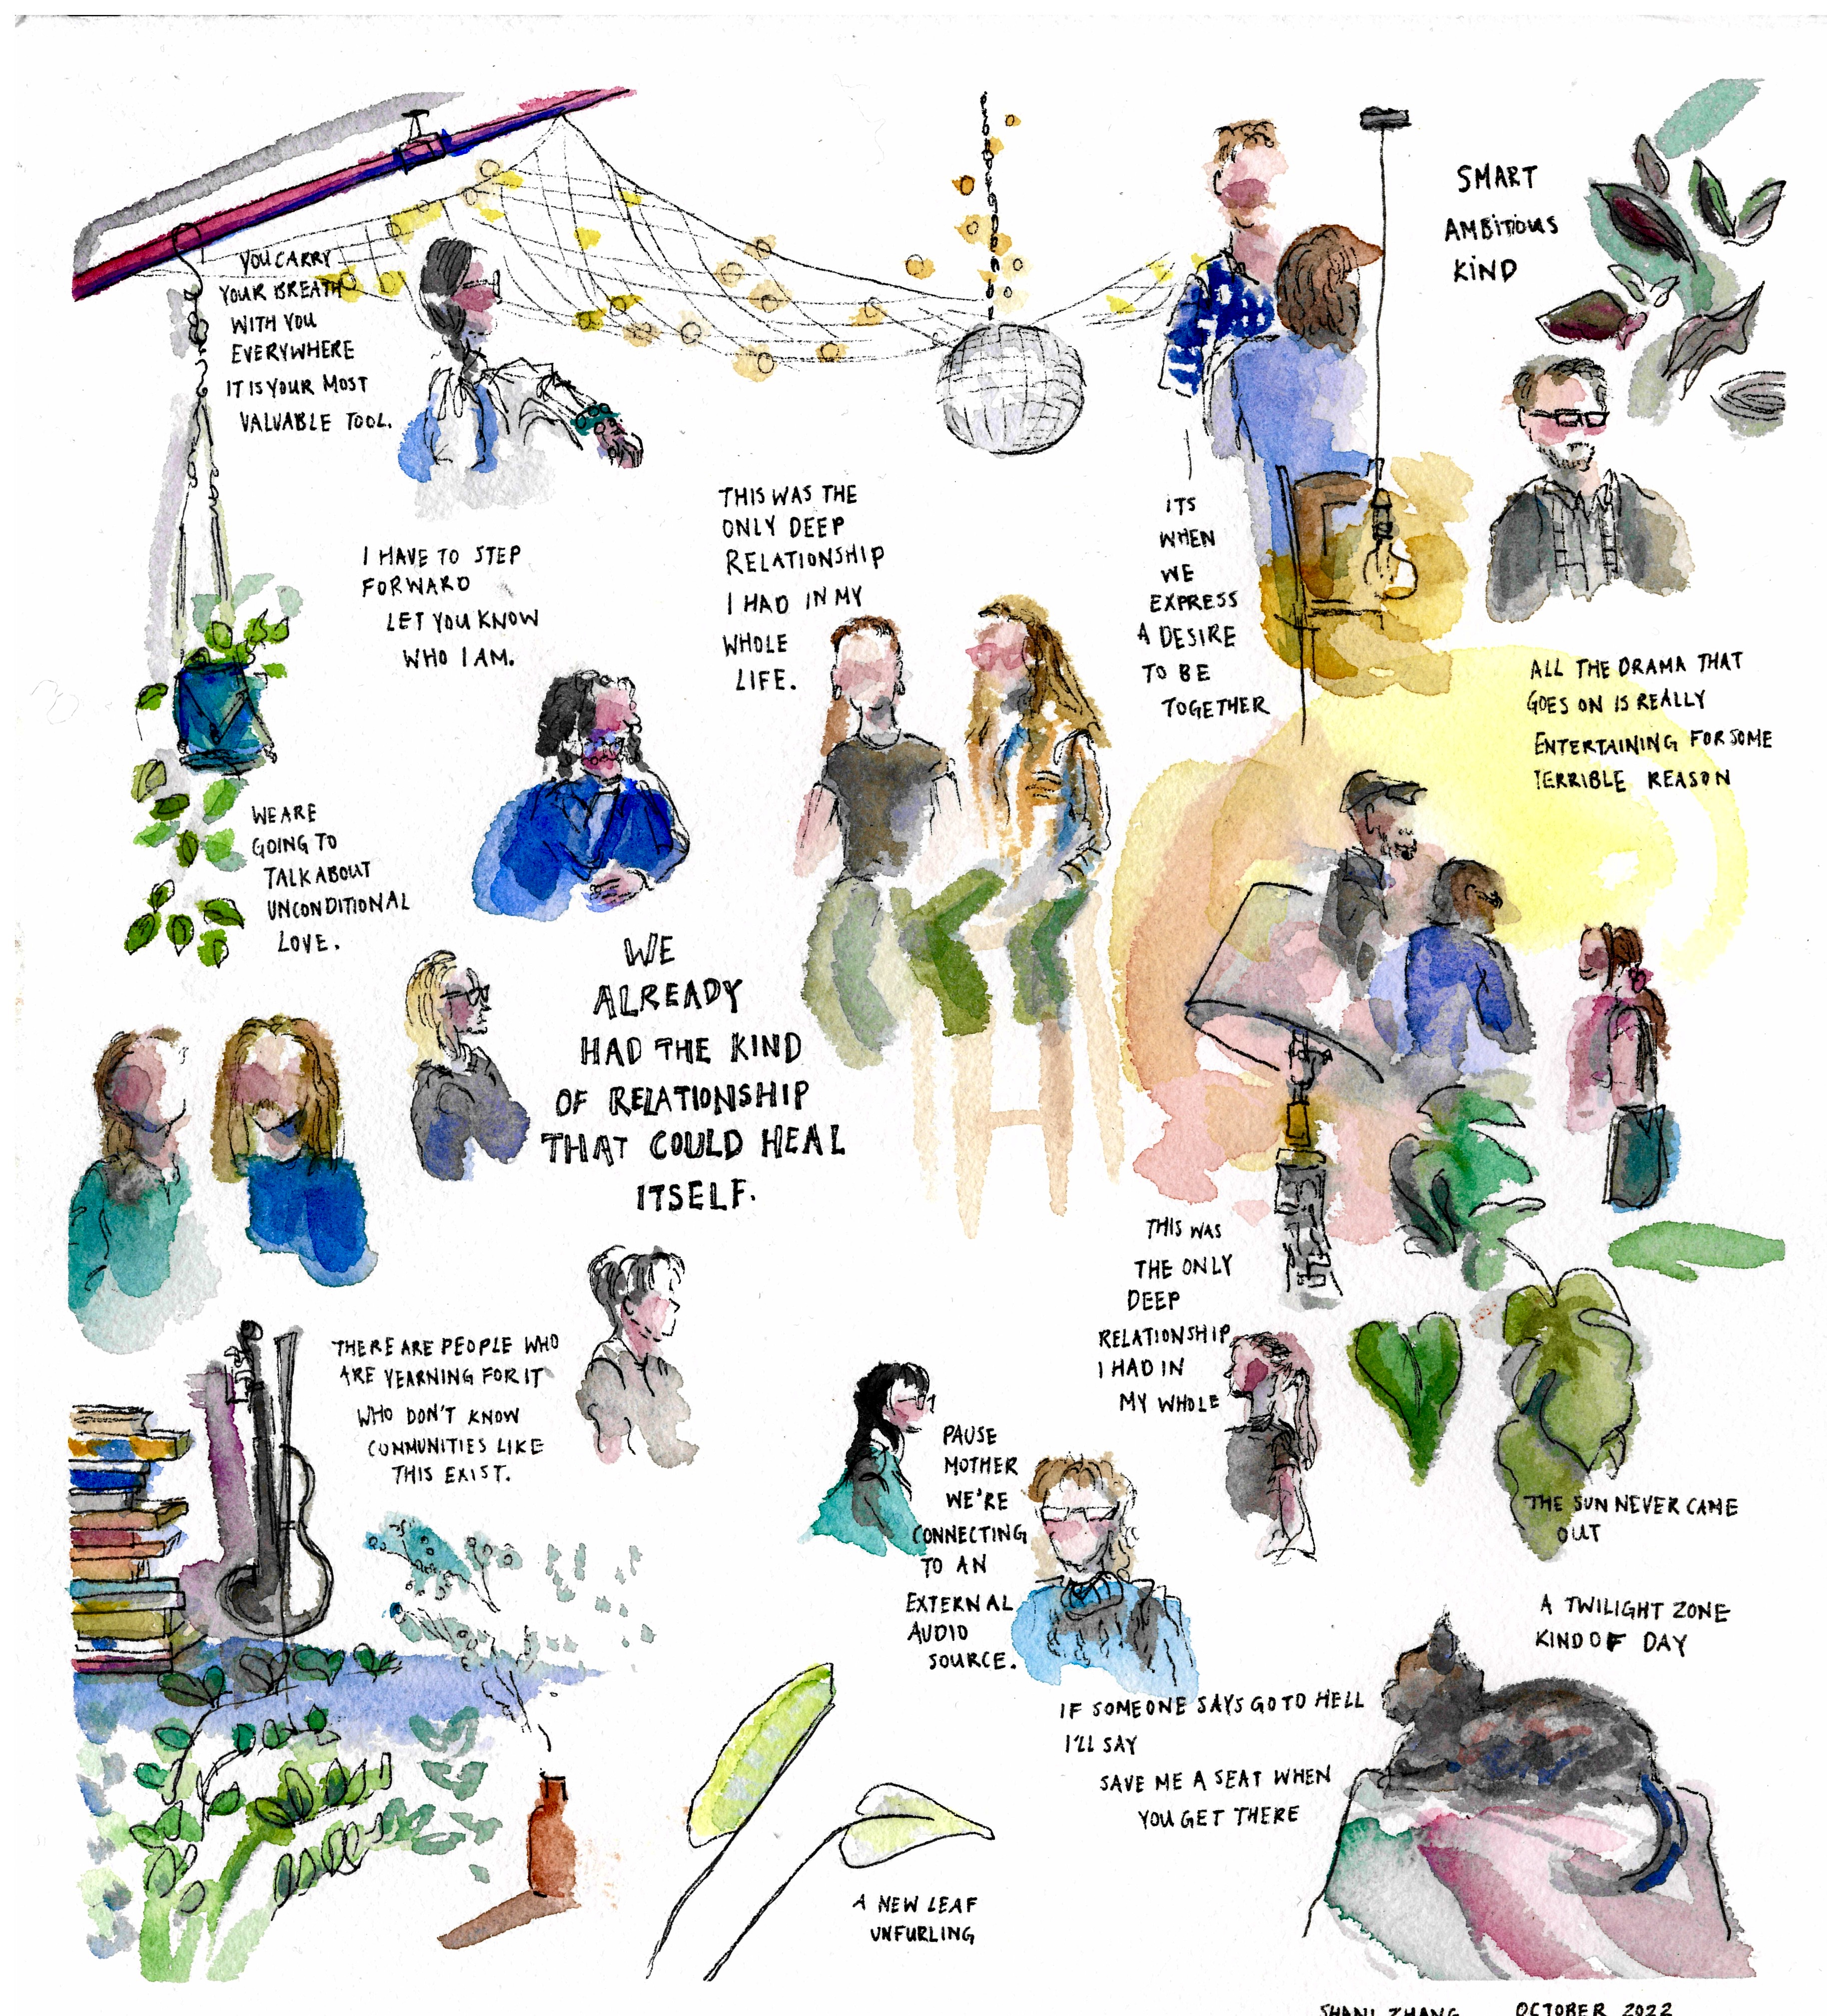 YOU CARRY
YOUR BREATH
WITH YOU
EVERYWHERE
IT IS YOUR MOST
VALUABLE TOOL.
SMART
AMBITIOUS
KIND
I HAVE TO STEP
FORWARD
LET YOU KNOW
WHO I AM.
THIS WAS THE
ONLY DEEP
RELATIONSHIP
I HAD IN MY
WHOLE
LIFE.
ITS
WHEN
WE
EXPRESS
A DESIRE
TO BE
TOGETHER
ALL THE DRAMA THAT
GOES ON IS REALLY
ENTERTAINING FOR SOME
TERRIBLE REASON
WE ARE
GOING TO
TALK ABOUT
UNCONDITIONAL
LOVE.
WE
ALREADY
HAD THE KIND
OF RELATIONSHIP
THAT COULD HEAL
ITSELF.
THIS WAS
THE ONLY
DEEP
RELATIONSHIP
I HAD IN
MY WHOLE
THERE ARE PEOPLE WHO
ARE YEARNING FOR IT
WHO DON'T KNOW
COMMUNITIES LIKE
THIS EXIST.
PAUSE
MOTHER
WE'RE
CONNECTING
TO AN
EXTERNAL
AUDIO
SOURCE.
THE SUN NEVER CAME
OUT
A TWILIGHT ZONE
KIND OF DAY
IF SOMEONE SAYS GO TO HELL
I'LL SAY
SAVE ME A SEAT WHEN
YOU GET THERE
A NEW LEAF
UNFURLING
SHANI ZHANG OCTOBER 2022